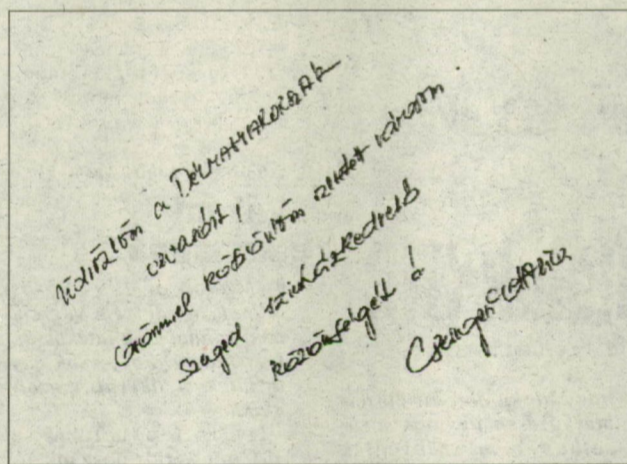 Üdvözlöm a DÉLMAGYARORSZÁG
olvasóit!
Örömmel köszöntöm szeretett városom
Szeged színházkedvelő
közönségét!